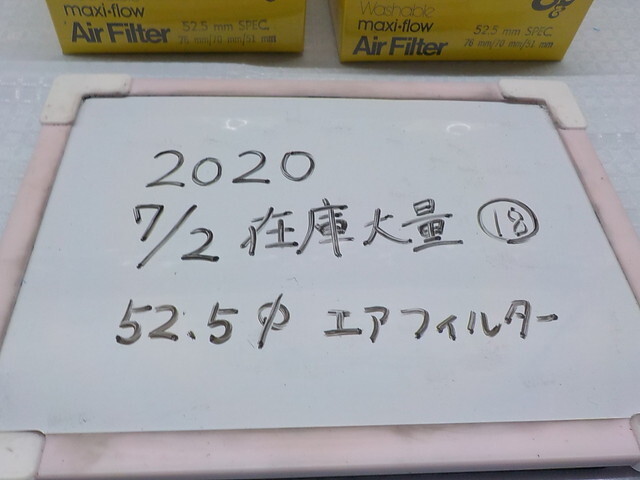 maxi-flow
Air Filter 52.5 mm SPEC.
76 mm/70 mm/51 mm
Washable
maxi-flow
Air Filter 52.5 mm SPEC.
76 mm/70 mm/51 mm
2020
7/2 在庫大量 ⑱
52.5φ エアフィルター